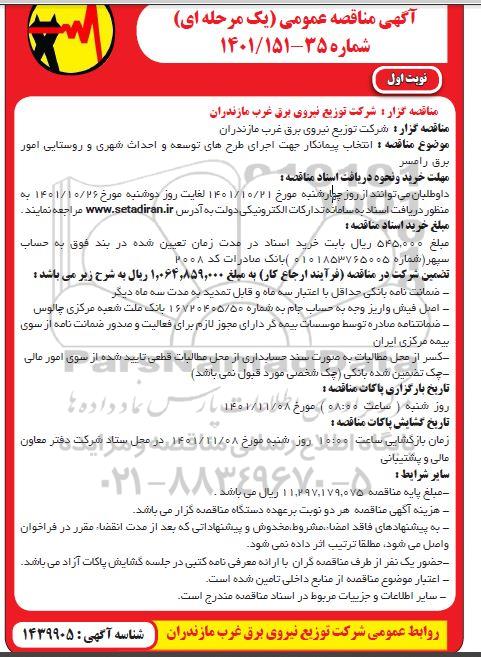 آگهی مناقصه عمومی (یک مرحله ای)
شماره ۳۵-۱۴۰۱/۱۵۱
نوبت اول
مناقصه گزار : شرکت توزیع نیروی برق غرب مازندران
مناقصه گزار : شرکت توزیع نیروی برق غرب مازندران
موضوع مناقصه : انتخاب پیمانکار جهت اجرای طرح های توسعه و احداث شهری و روستایی امور
برق رامسر
مهلت خرید ونحوه دریافت اسناد مناقصه :
داوطلبان می‌توانند از روز چهارشنبه مورخ ۱۴۰۱/۱۰/۲۱ لغایت روز دوشنبه مورخ ۱۴۰۱/۱۰/۲۶ به
منظور دریافت اسناد به سامانه تدارکات الکترونیکی دولت به آدرس www.setadiran.ir مراجعه نمایند.
مبلغ خرید اسناد مناقصه :
مبلغ ۵۴۵,۰۰۰ ریال بابت خرید اسناد در مدت زمان تعیین شده در بند فوق به حساب
سپهر(شماره ۰۱۰۱۸۵۳۷۶۵۰۰۵ )بانک صادرات کد ۲۰۰۸
تضمین شرکت در مناقصه (فرآیند ارجاع کار) به مبلغ ۱,۰۶۴,۸۵۹,۰۰۰ ریال به شرح زیر می باشد :
- ضمانت نامه بانکی حداقل با اعتبار سه ماه و قابل تمدید به مدت سه ماه دیگر
- اصل فیش واریز وجه به حساب جام به شماره ۱۶۷۲۰۴۰۵/۵۰ بانک ملت شعبه مرکزی چالوس
- ضمانتنامه صادره توسط موسسات بیمه گر دارای مجوز لازم برای فعالیت و صدور ضمانت نامه از سوی
بیمه مرکزی ایران
-کسر از محل مطالبات به صورت سند حسابداری از محل مطالبات قطعی تایید شده از سوی امور مالی
-چک تضمین شده بانکی (چک شخصی مورد قبول نمی باشد)
تاریخ بارگزاری پاکات مناقصه :
روز شنبه ( ساعت ۰۸:۰۰ ) مورخ ۱۴۰۱/۱۱/۰۸
تاریخ گشایش پاکات مناقصه :
زمان بازگشایی ساعت ۱۰:۰۰ روز شنبه مورخ ۱۴۰۱/۱۱/۰۸ در محل ستاد شرکت دفتر معاون
مالی و پشتیبانی
سایر شرایط :
-مبلغ پایه مناقصه ۱۱,۲۹۷,۱۷۹,۰۷۵ ریال می باشد .
- هزینه آگهی مناقصه هر دو نوبت برعهده دستگاه مناقصه گزار می باشد.
- به پیشنهادهای فاقد امضاء،مشروط،مخدوش و پیشنهاداتی که بعد از مدت انقضاء مقرر در فراخوان
واصل می شود، مطلقا ترتیب اثر داده نمی شود.
-حضور یک نفر از طرف مناقصه گران با ارائه معرفی نامه کتبی در جلسه گشایش پاکات آزاد می باشد.
- اعتبار موضوع مناقصه از منابع داخلی تامین شده است.
- سایر اطلاعات و جزییات مربوط در اسناد مناقصه مندرج است.
روابط عمومی شرکت توزیع نیروی برق غرب مازندران
شناسه آگهی : ۱۴۳۹۹۰۵
۰۲۱-۸۸۳۴۹۶۷۰-۵